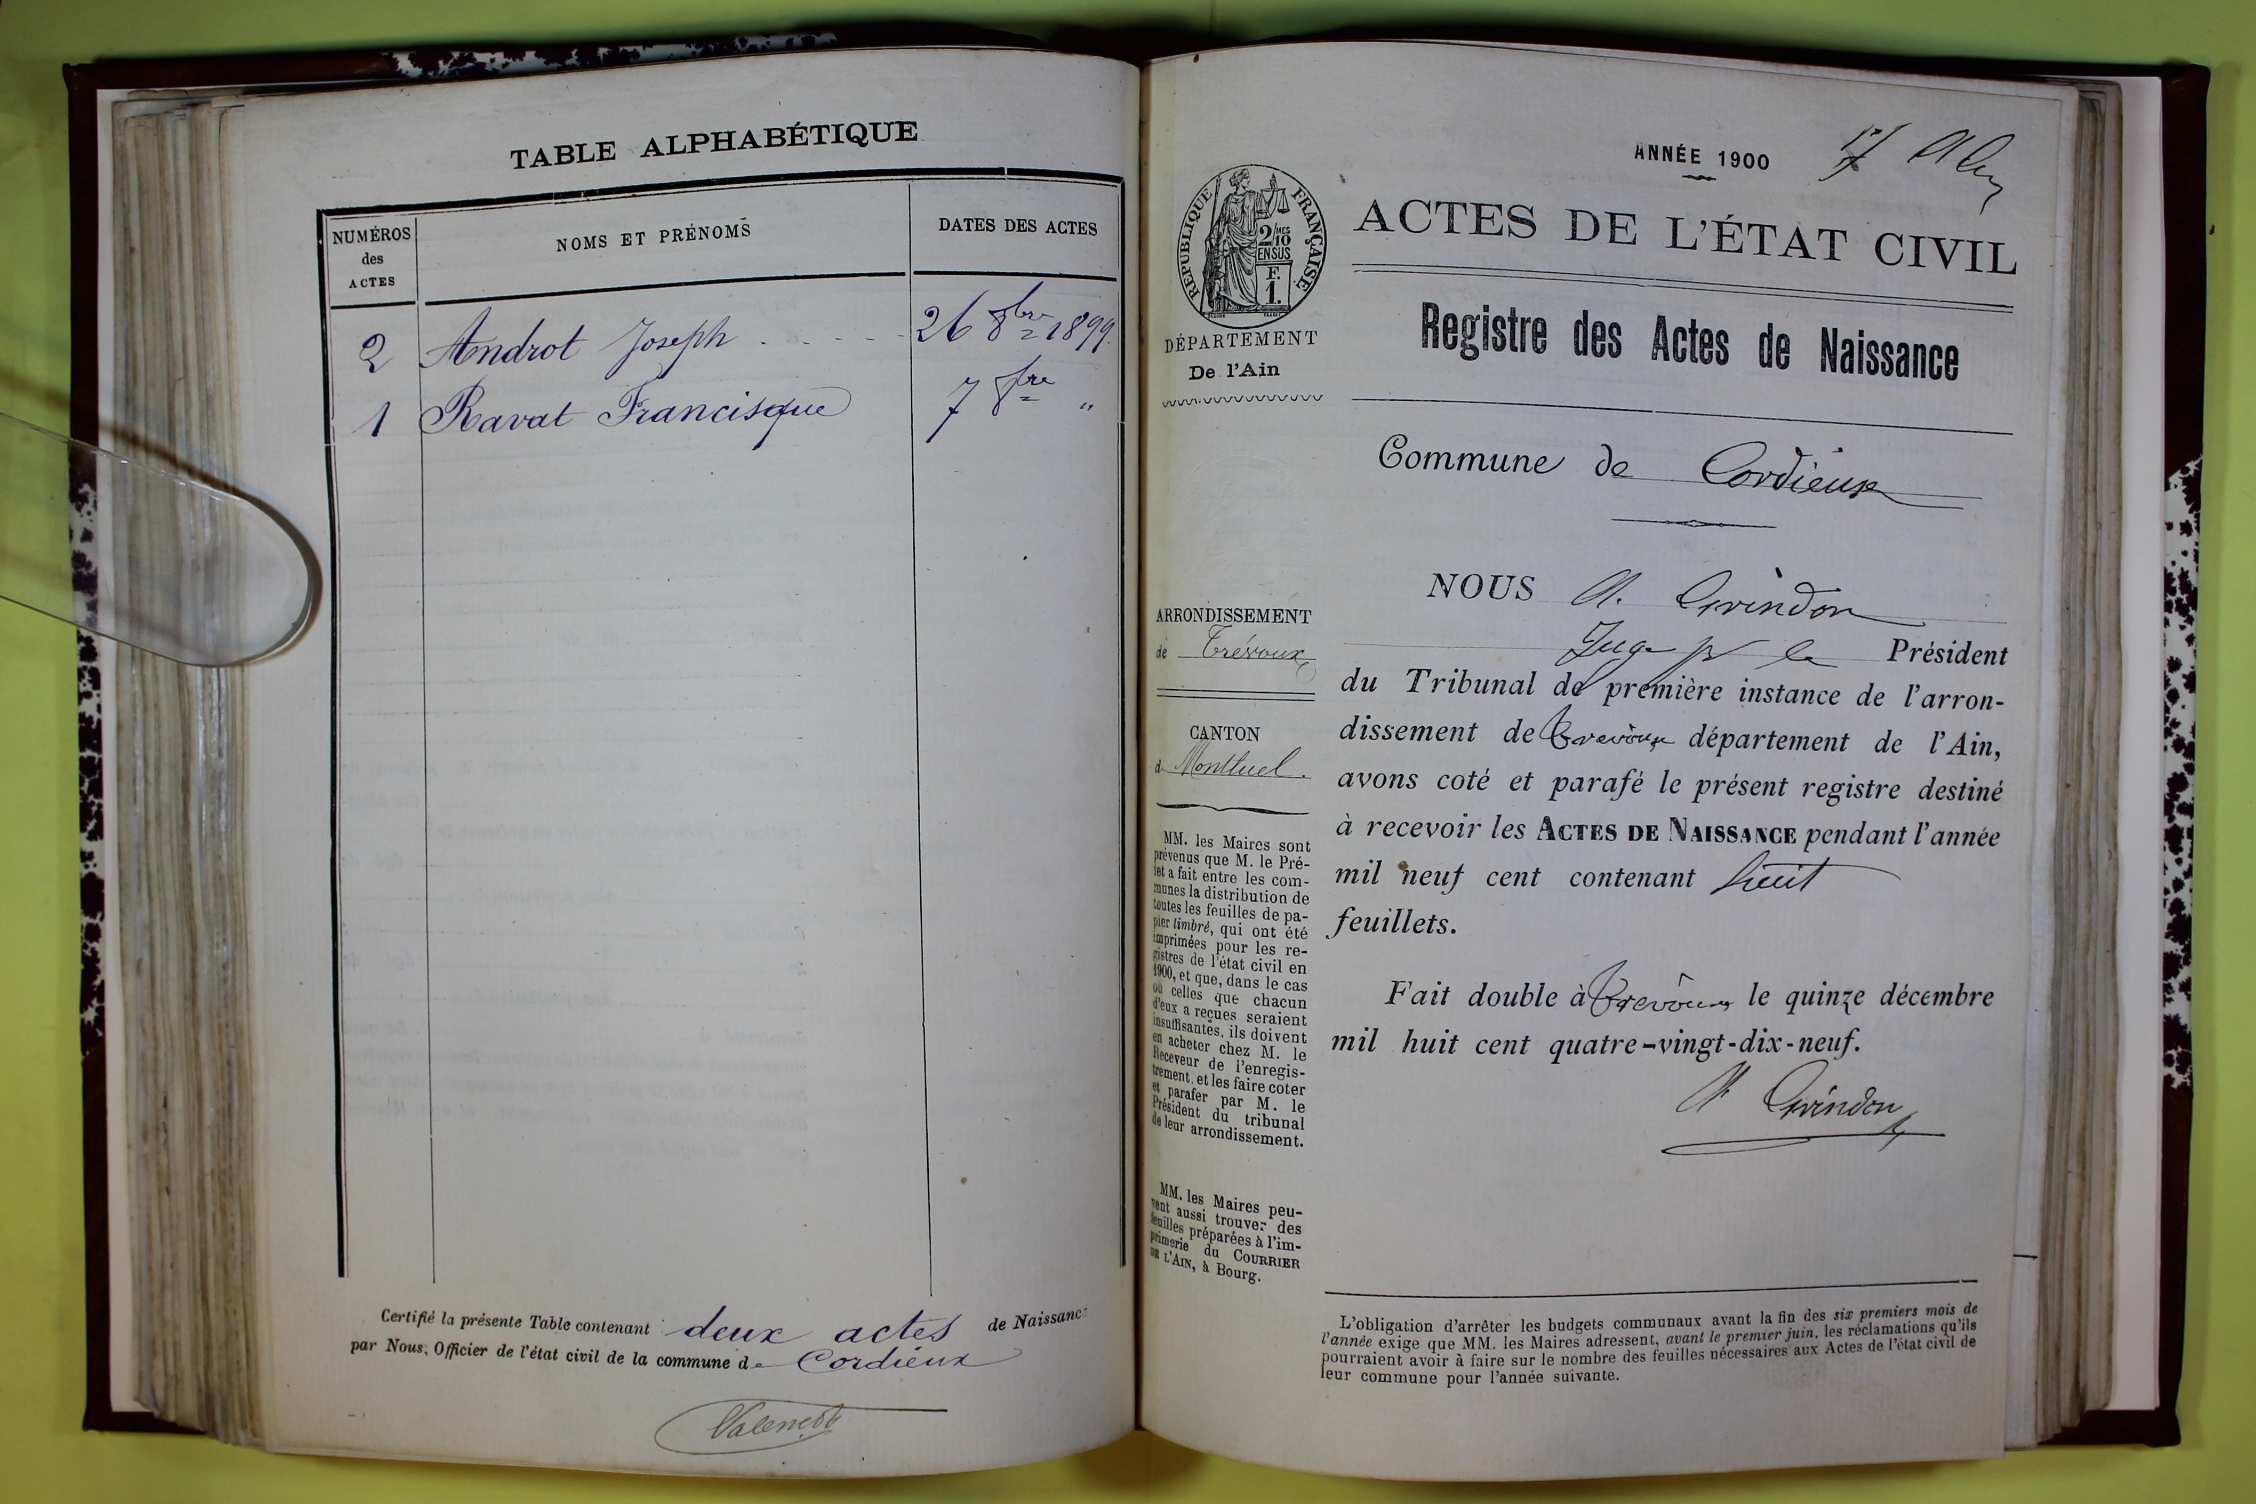 TABLE ALPHABÉTIQUE
NUMÉROS
des
ACTES
NOMS ET PRÉNOMS
DATES DES ACTES
2 Androt Joseph . . . . . 26 8bre 1899.
1 Ravat Francisque 7 8bre "
Certifié la présente Table contenant deux actes de Naissance
par Nous, Officier de l'état civil de la commune de Cordieux
ANNÉE 1900
ACTES DE L'ÉTAT CIVIL
RÉPUBLIQUE FRANÇAISE
2/10 MES
EN SUS
F.
1.
DÉPARTEMENT
De l'Ain
Registre des Actes de Naissance
Commune de Cordieux
ARRONDISSEMENT
de Trévoux
CANTON
de Montluel.
MM. les Maires sont
prévenus que M. le Pré-
fet a fait entre les com-
munes la distribution de
toutes les feuilles de pa-
pier timbré, qui ont été
imprimées pour les re-
gistres de l'état civil en
1900, et que, dans le cas
où celles que chacun
d'eux a reçues seraient
insuffisantes, ils doivent
en acheter chez M. le
Receveur de l'enregis-
trement, et les faire coter
et parafer par M. le
Président du tribunal
de leur arrondissement.
MM. les Maires peu-
vent aussi trouver des
feuilles préparées à l'im-
primerie du COURRIER
DE L'AIN, à Bourg.
NOUS A. Grindon
Juge pr le Président
du Tribunal de première instance de l'arron-
dissement de Trevoux département de l'Ain,
avons coté et parafé le présent registre destiné
à recevoir les ACTES DE NAISSANCE pendant l'année
mil neuf cent contenant huit
feuillets.
Fait double à Trevoux le quinze décembre
mil huit cent quatre-vingt-dix-neuf.
A Grindon
L'obligation d'arrêter les budgets communaux avant la fin des six premiers mois de
l'année exige que MM. les Maires adressent, avant le premier juin, les réclamations qu'ils
pourraient avoir à faire sur le nombre des feuilles nécessaires aux Actes de l'état civil de
leur commune pour l'année suivante.